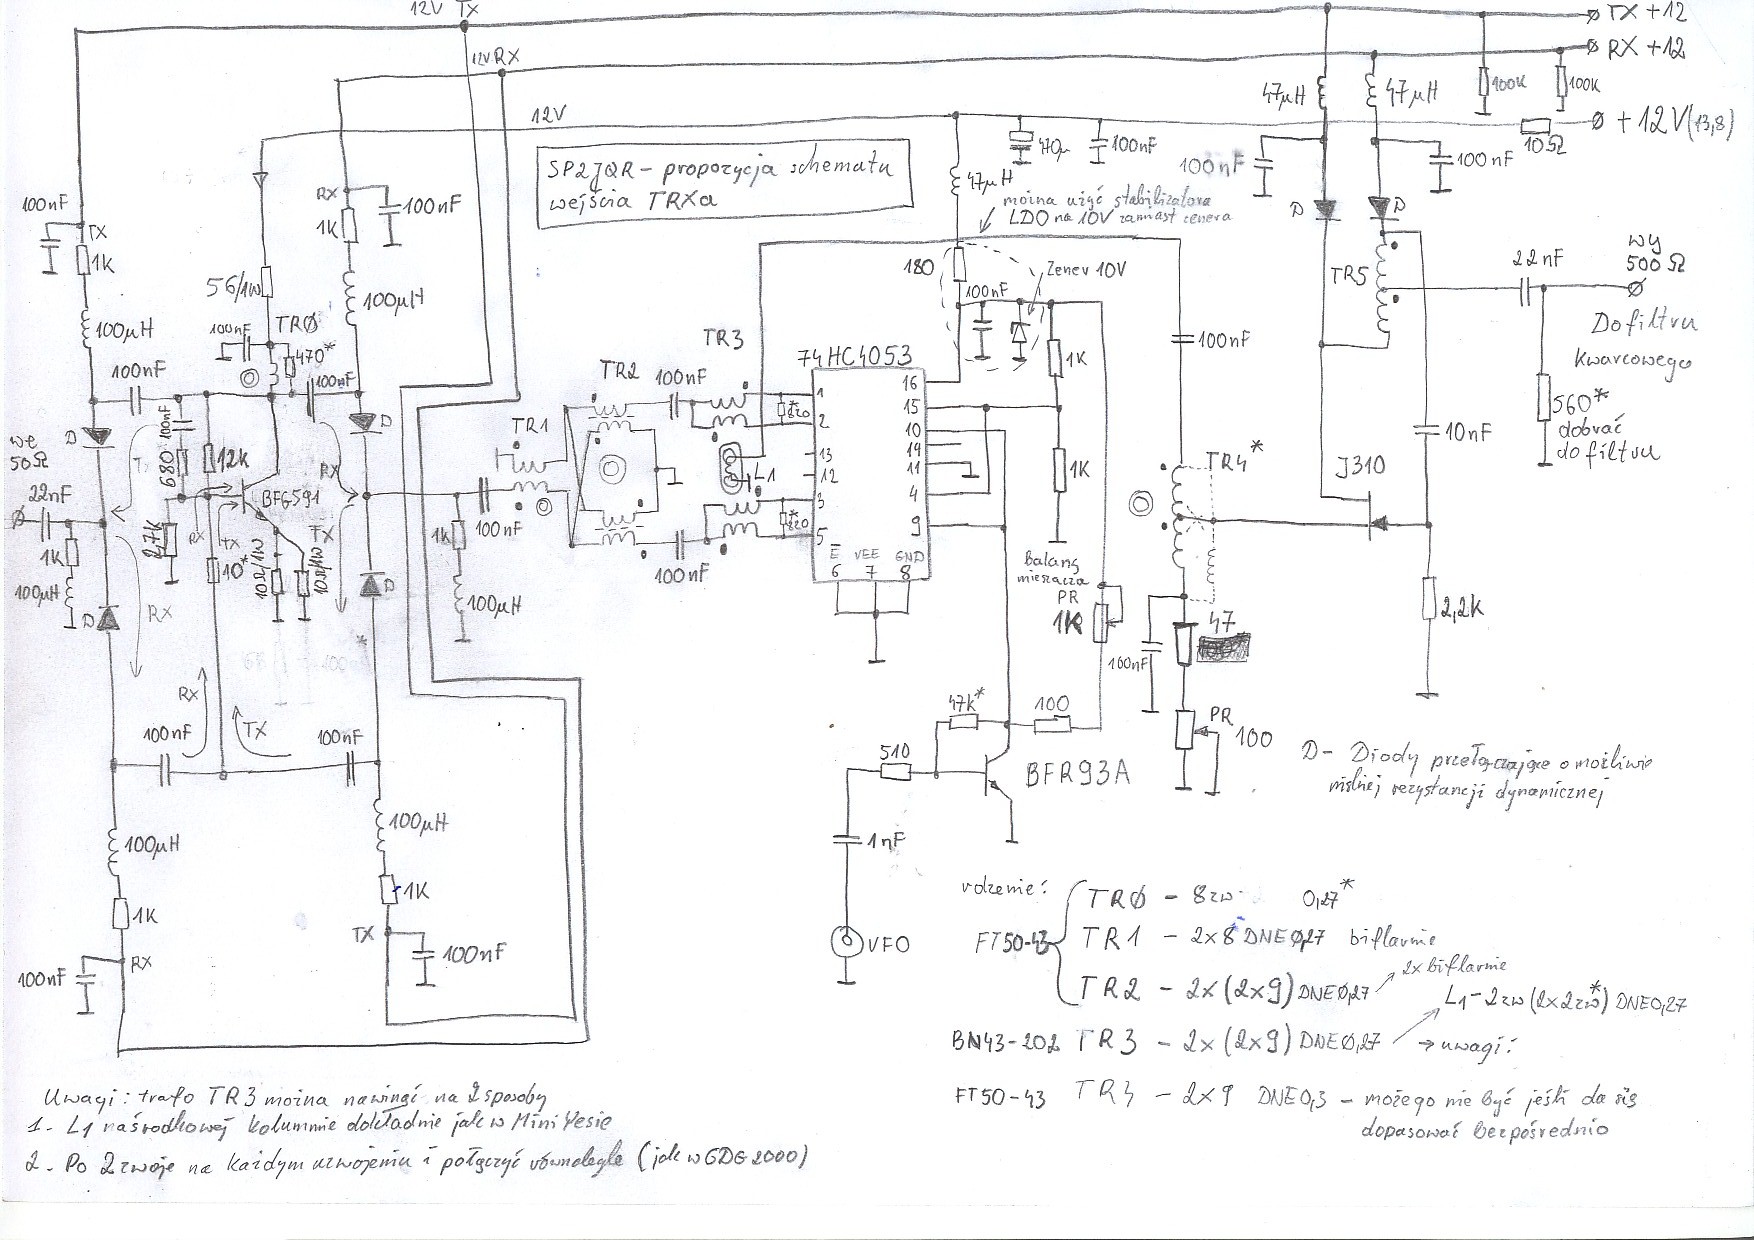 12V TX
TX +12
12V RX
RX +12
47µH
47µH
100K
100K
12V
+12V(13,8)
10Ω
470µ
100nF
100nF
100nF
SP2JQR - propozycja schematu
wejścia TRXa
47µH
można użyć stabilizatora
LDO na 10V zamiast zenera
100nF
TX
1K
RX
1K
100nF
D
D
180
Zener 10V
100nF
56/1W
100µH
100µH
TR5
22nF
wy
500Ω
Do filtru
kwarcowego
100nF
TRØ
470*
100nF
100nF
TR3
74HC4053
1K
100nF
TR2
100nF
16
D
100nF
680
12K
D
we
50Ω
22nF
BFG591
RX
TX
TR1
820*
1
2
13
12
3
5
15
10
14
11
4
9
L1
820*
1K
TR4*
560*
dobrać
do filtru
10nF
J310
1K
100µH
2,7K
RX
TX
10*
10Ω/1W
10Ω/1W
TX
1K
100nF
100nF
E VEE GND
6 7 8
D
RX
D
*
100µH
Balans
mieszacza
PR
1K
47
100nF
2,2K
RX
TX
100nF
100nF
47K*
100
PR
100
510
BFR93A
D - Diody przełączające o możliwie
niskiej rezystancji dynamicznej
100µH
100µH
1nF
1K
1K
TX
100nF
VFO
100nF
RX
rdzenie:
FT50-43
TRØ - 8zw 0,27*
TR1 - 2x8 DNE0,27 biflarnie
TR2 - 2x(2x9) DNE0,27
2x biflarnie
L1 - 2zw (2x2zw*) DNE0,27
BN43-202 TR3 - 2x(2x9) DNE0,27 → uwagi:
FT50-43 TR4 - 2x9 DNE0,3 - możego nie być jeśli da się
dopasować bezpośrednio
Uwagi: trafo TR3 można nawinąć na 2 sposoby
1. - L1 na środkowej kolumnie dokładnie jak w Mini Yesie
2. - Po 2 zwoje na każdym uzwojeniu i połączyć równolegle (jak w GDG 2000)